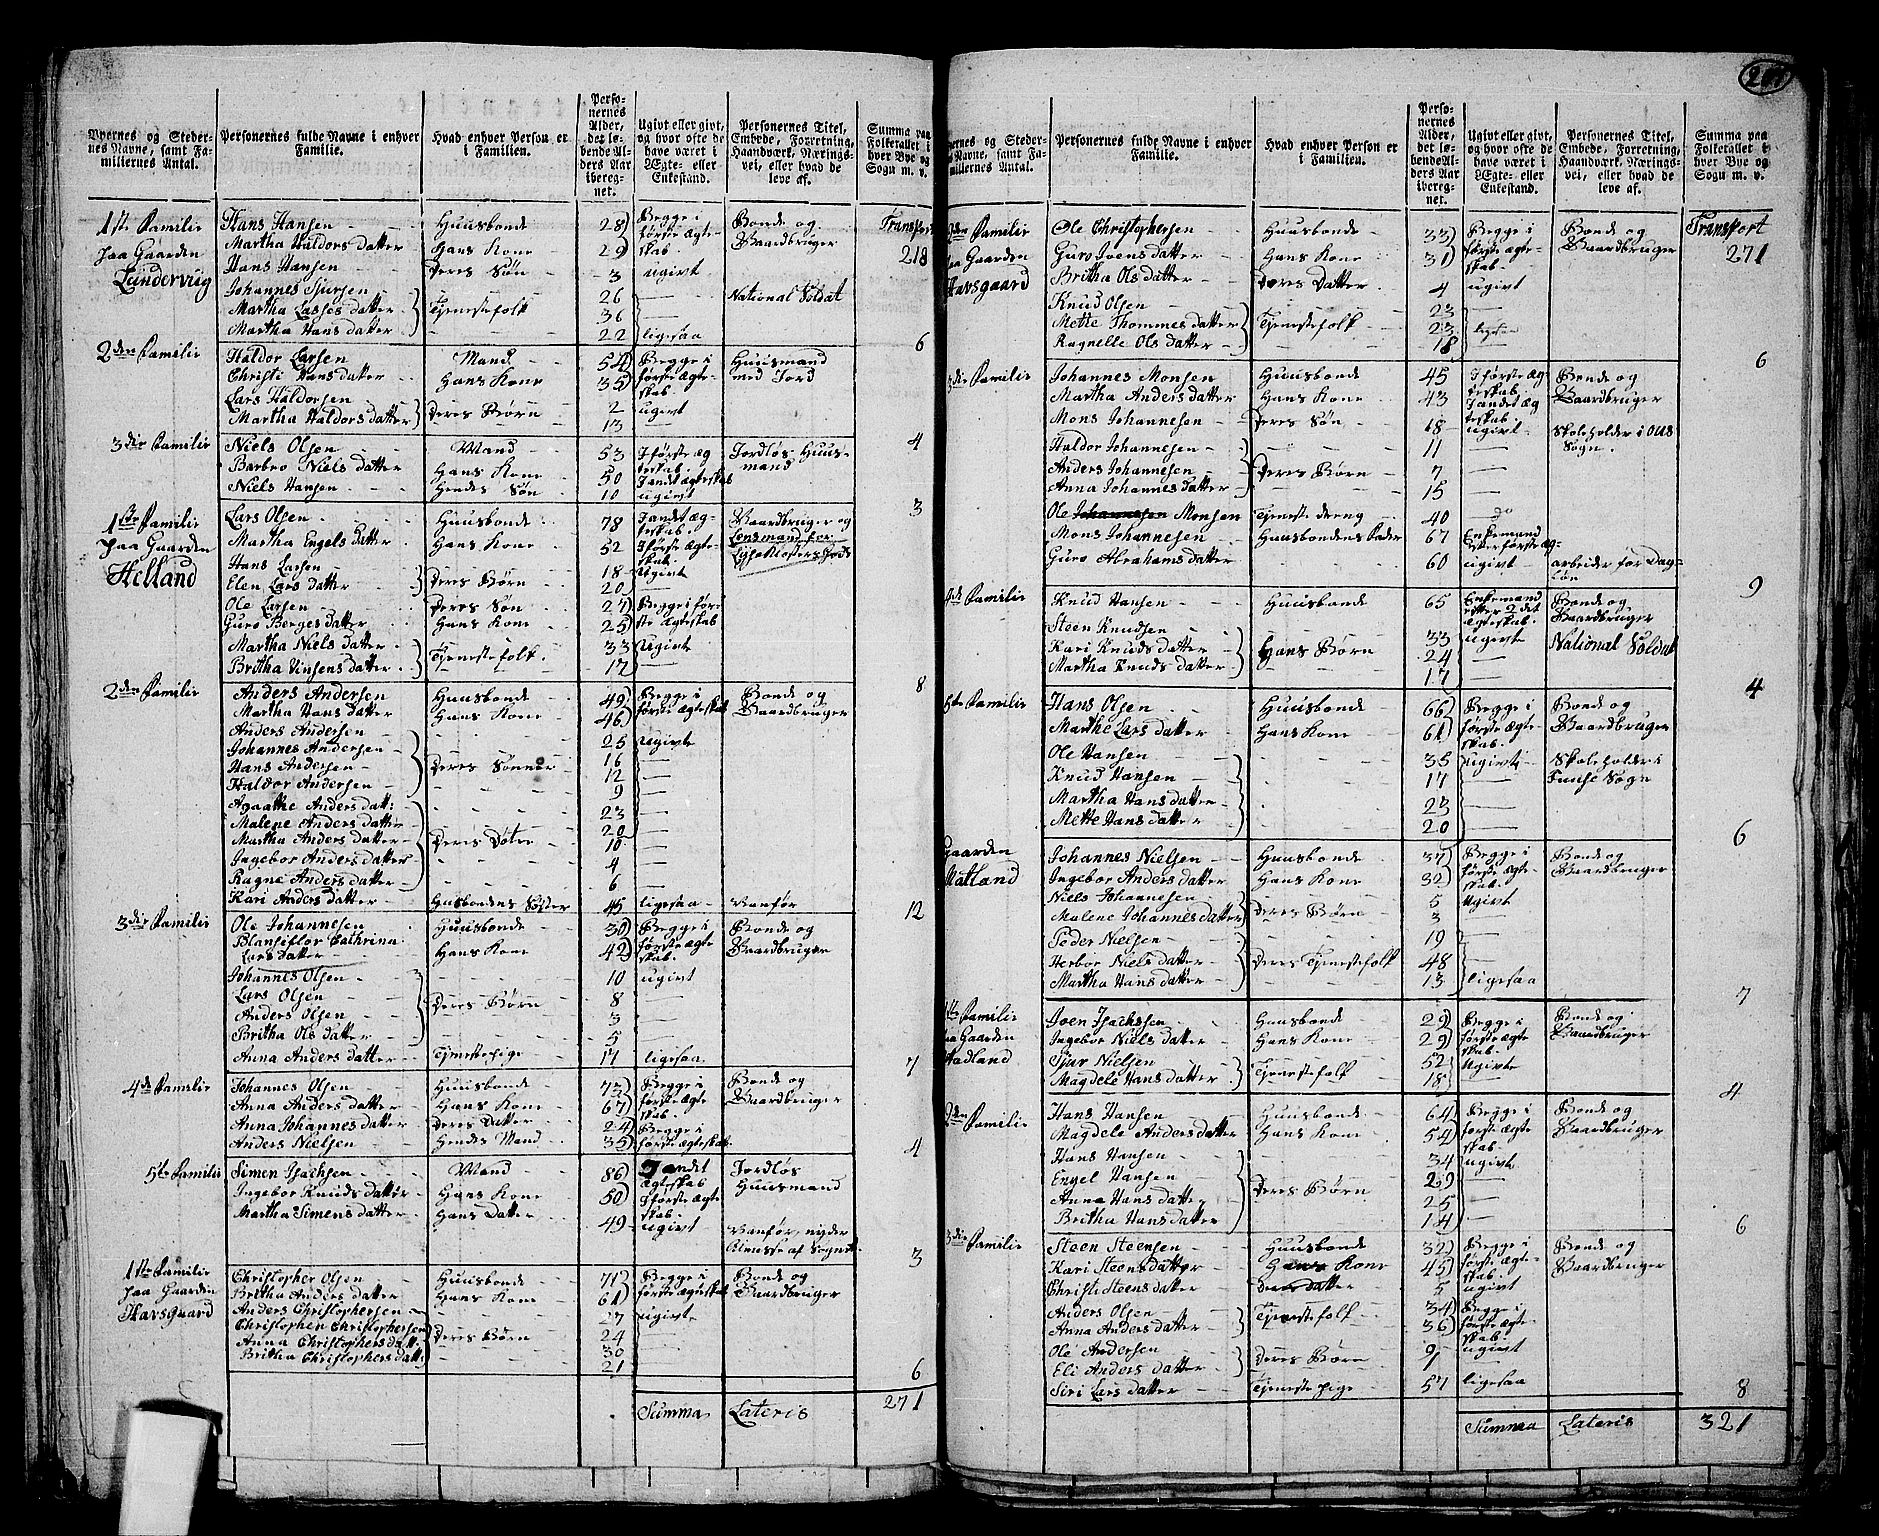 Byernes og Steder-
nes Navne, samt Fa-
miliernes Antal.
Personernes fulde Navne i enhver
Familie.
Hvad enhver Person er
i Familien.
Perso-
nernes
Alder,
det lø-
bende Al-
ders Aar
ibereg-
net.
Ugivt eller givt,
og hvor ofte de
have været i
Ægte- eller
Enkestand.
Personernes Titel,
Embede, Forretning,
Haandværk, Nærings-
vei, eller hvad de
leve af.
Summa paa
Folketallet i
hver Bye og
Sogn m. v.
1ste Familie Hans Hansen Huusbonde 28 Begge i Bonde og Transport
paa Gaarden Martha Haldors datter Hans Kone 29 første ægte- Gaardbruger 218
skab
Hans Hansen Deres Søn 3 ugivt
Johannes Sjursen 26 — National Soldat
Martha Lasses datter Tjenestefolk 36 —
Martha Hans datter 22 ligesaa 6
2den Familie Haldor Larsen Mand 54 Begge i Huusmand
Christi Hans datter Hans Kone 35 første ægte- med Jord
skab.
Lars Haldorsen 2 ugivt
Martha Haldors datter Deres Børn 13 — 4
3die Familie Niels Olsen Mand 53 I første æg Jordløs Huus-
teskab. mand
Barbro Niels datter Hans Kone 50 I andet ægteskab
Niels Hansen Hendes Søn 10 ugivt 3
1ste Familie Lars Olsen Huusbonde 78 I andet æg- Gaardbruger og
paa Gaarden Martha Engels datter Hans Kone 52 teskab. I første ægte- Lensmand for
Helland skab
Hans Larsen 18 Ugivt
Elen Lars datter Deres Børn 20
Ole Larsen Deres Søn 27 Begge i før-
Guro Berges datter Hans Kone 25 ste ægteskab
Martha Niels datter 33 Ugivt
Britha Vinsens datter Tjenestefolk 17 — 8
2den Familie Anders Andersen Huusbonde 49 Begge i Bonde og
Martha Hans datter Hans Kone 46 første ægteskab Gaardbruger
Anders Andersen 25 Ugivt
Johannes Andersen 16 —
Hans Andersen Deres Sønner 12 —
Haldor Andersen 9 —
Agaathe Anders datt: 23 —
Malene Anders datter 20 —
Martha Anders datter Deres Døtre 10 —
Ingebor Anders datter 4 —
Ragne Anders datter 6 —
Kari Anders datter Husbondens Søster 45 ligesaa Vanfør 12
3die Familie Ole Johannesen Huusbonde 30 Begge i Bonde og
Blansiflor Cathrina Hans Kone 42 første ægte Gaardbruger
Lars datter skab.
Johannes Olsen 10 ugivt
Lars Olsen Deres Børn 8 —
Anders Olsen 3 —
Britha Ols datter 5 —
Anna Anders datter Tjenestepige 17 ligesaa 7
4de Familie Johannes Olsen Huusbonde 73 Begge i Bonde og
Anna Anders datter Hans Kone 67 første ægte Gaardbruger
skab.
Anna Johannes datter Deres Datter 24 Begge i
Anders Nielsen Hendes Mand 35 første ægteskab 4
5te Familie Simen Isachsen Mand 86 I andet Jordløs
ægteskab Huusmand
Ingebor Knuds datter Hans Kone 50 I første ægte
skab.
Martha Simens datter Hans Datter 49 ugivt Vanfør, nyder
Almisse af Sognet 3
1ste Familie Christopher Olsen Huusbonde 71 Begge i Bonde og
paa Gaarden Britha Anders datter Hans Kone 61 første ægteskab Gaardbruger
Havsgaard Anders Christophersen 27 ugivt
Christophen Christophersen Deres Børn 24
Anna Christophers datt: 30
Britha Christophers datt: 21 6
Summa Lateris 271
Byernes og Steder-
nes Navne, samt Fa-
miliernes Antal.
Personernes fulde Navne i enhver
Familie.
Hvad enhver Person er
i Familien.
Perso-
nernes
Alder,
det lø-
bende Al-
ders Aar
ibereg-
net.
Ugivt eller givt,
og hvor ofte de
have været i
Ægte- eller
Enkestand.
Personernes Titel,
Embede, Forretning,
Haandværk, Nærings-
vei, eller hvad de
leve af.
Summa paa
Folketallet i
hver Bye og
Sogn m. v.
2den Familie Ole Christophersen Huusbonde 33 Begge i Bonde og Transport
paa Gaarden Guro Ivens datter Hans Kone 31 første ægte- Gaardbruger 271
skab.
Havsgaard Britha Ols datter Deres Datter 4 ugivt
Knud Olsen 23 —
Mette Thommes datter Tjenestefolk 23 lige
Ragnelle Ols datter 18 6
3die Familie Johannes Monsen Huusbonde 45 I første æg Bonde og
teskab
Martha Anders datter Hans Kone 43 I andet æg Gaardbruger
teskab
Mons Johannesen Deres Søn 18 ugivt Skoleholder i Ous
Sogn.
Haldor Johannesen 11 —
Anders Johannesen Deres Børn 7 —
Anna Johannes datter 15 —
Ole Johannesen Monsen Tjeneste dreng 40 do
Mons Johannesen Huusbondens Fader 67 Enkemand
efter første æg-
Guro Abrahams datter 60 ugivt arbeider for Dag-
løn 9
4de Familie Knud Hansen Huusbonde 65 Enkemand Bonde og
efter 2 det Gaardbruger
ægteskab.
Steen Knudsen 33 ugivt National Soldat
Kari Knuds datter Hans Børn 24 —
Martha Knuds datter 17 — 4
5te Familie Hans Olsen Huusbonde 66 Begge i Bonde og
Marthe Lars datter Hans Kone 61 første ægte- Gaardbruger
skab.
Ole Hansen 35 ugivt Skoleholder i
Knud Hansen 17 Fuuse Sogn
Martha Hans datter 23 —
Mette Hans datter 20 — 6
Gaarden Johannes Nielsen Huusbonde 37 Begge i Bonde og
Ingebor Anders datter Hans Kone 32 første ægte- Gaardbruger
skab.
Niels Johannesen 5 Ugivt
Malene Johannes datter Deres Børn 3 —
Peder Nielsen 19 —
Herbor Niels datter Deres Tjenestefolk 48 —
Martha Hans datter 13 ligesaa 7
1ste Familie Joen Isachsen Huusbonde 29 Begge i Bonde og
paa Gaarden Ingebor Niels datter Hans Kone 29 første ægte Gaardbruger
skab.
Hadland Sjur Nielsen 52 Ugivte
Magdele Hans datter Tjenestefolk 18 4
2den Familie Hans Hansen Huusbonde 64 Begge i Bonde og
Magdele Anders datter Hans Kone 54 første ægte Gaardbruger
skab.
Hans Hansen 34 ugivt
Engel Hansen 29 —
Anna Hans datter Deres Børn 25 —
Britha Hans datter 14 — 6
3die Familie Steen Steensen Huusbonde 32 Begge i Bonde og
Kari Steens datter Hans Kone 45 første ægte- Gaardbruger
skab.
Christi Steens datter Deres datter 5 ugivt
Anders Olsen Tjenestefolk 34 Begge i
Anna Anders datter 36 første ægte-
skab.
Ole Andersen 9 ugivt
Eli Anders datter Deres Børn 1 —
Siri Lars datter Tjeneste pige 57 ligesaa 8
Summa Lateris 321